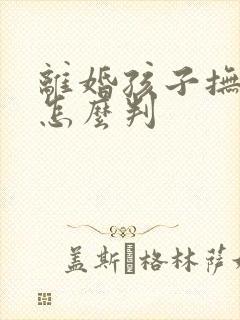 離婚孩子撫
怎麼判
盖斯 格林萨